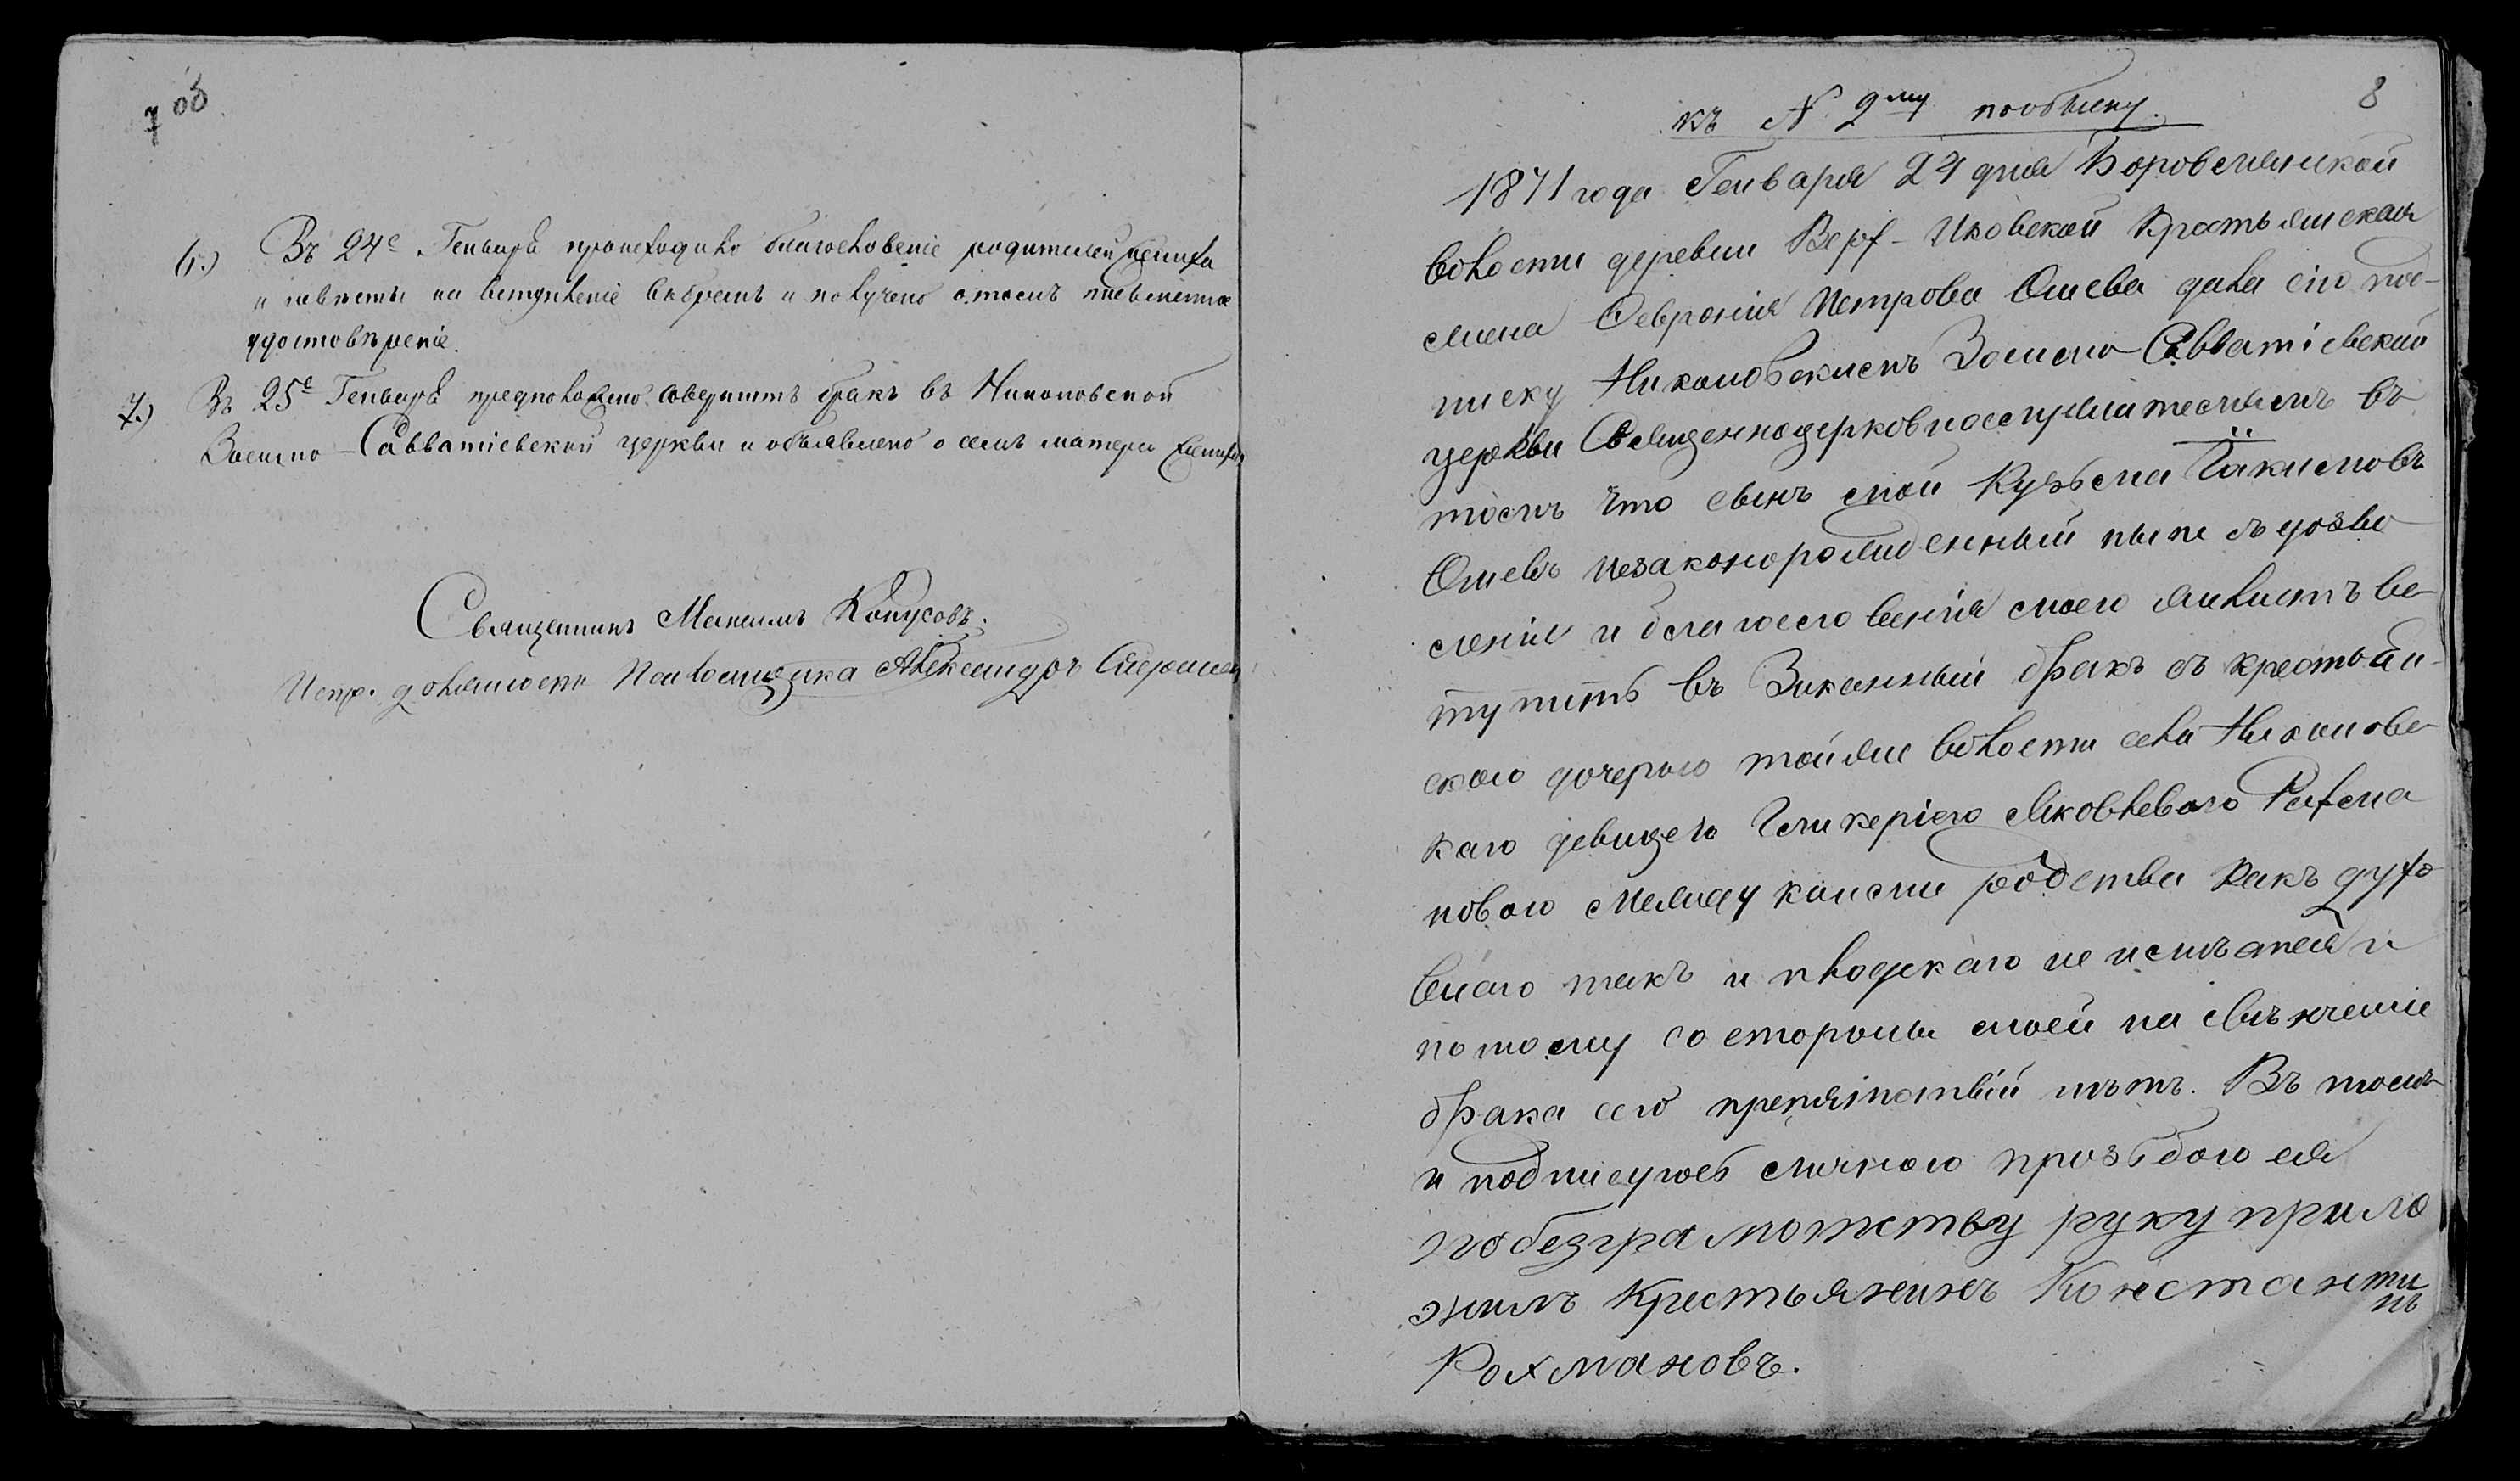 7 об
6.) Въ 24е Генваря происходило благословеніе родителей жениха
и невѣсты на вступленіе въ бракъ и получено о томъ письменное
удостовѣреніе.
7.) Въ 25е Генваря предположено совершить бракъ въ Никоновской
Зосимо-Савватіевской церкви и объявлено о семъ матери жениха
Священникъ Максимъ
Испр. должность Псаломщика Александръ
8
къ № 2му пообыску.
1871 года Генваря 24 дня Боровлянской
волости деревни Верх-Иковской Крестьянская
жена Февронія Петрова Ошева дала сію под-
писку Никоновскимъ Зосимо-Савватіевской
церкви Священноцерковнослужителямъ въ
томъ что сынъ мой Кузьма Іакимовъ
Ошевъ незаконорожденный нынѣ съ дозво
ленія и благословенія моего желаетъ вс
тупить въ Законный бракъ съ крестьян-
скою дочерью той же волости села Никоновс
каго девицею Гликеріею Яковлевою Рахма
новою между коими родства какъ духо
внаго такъ и плодскаго не имѣется и
потому со стороны моей на свѣнчаніе
брака сего препятствій нѣтъ. Въ томъ
и подписуюсь личною прозьбою ея
по безграмотству руку прило
жилъ Крестьянинъ Константи
нъ
Рохмановъ.